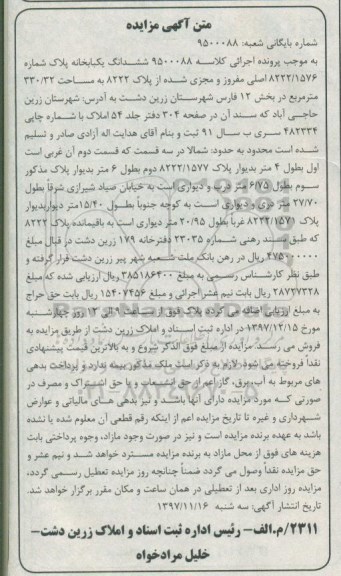 متن آگهی مزایده
شماره بایگانی شعبه: ۹۵۰۰۰۸۸
به موجب پرونده اجرائی کلاسه ۹۵۰۰۰۸۸ ششدانگ یکبابخانه پلاک شماره
۸۲۲۲/۱۵۷۶ اصلی مفروز و مجزی شده از پلاک ۸۲۲۲ به مساحت ۳۳۰/۳۲
مترمربع در بخش ۱۲ فارس شهرستان زرین دشت به آدرس: شهرستان زرین
حاجی آباد که سند آن در صفحه ۳۰۴ دفتر جلد ۵۴ املاک با شماره چاپی
۴۸۲۳۳۴ سری ب سال ۹۱ ثبت و بنام آقای هدایت اله آزادی صادر و تسلیم
شده است محدود به حدود: شمالا در سه قسمت که قسمت دوم آن غربی است
اول بطول ۴ متر بدیوار پلاک ۸۲۲۲/۱۵۷۷ دوم بطول ۶ متر بدیوار پلاک مذکور
سوم بطول ۶/۷۵ متر درب و دیواری است به خیابان صیاد شیرازی شرقاً بطول
۲۷/۷۰ متر درب و دیواری است به کوچه جنوباً بطول ۱۵/۴۰ متر دیواربدیوار
پلاک ۸۲۲۲/۱۵۷۱ غرباً بطول ۲۰/۹۵ متر دیواری است به باقیمانده پلاک ۸۲۲۲
که طبق سند رهنی شماره ۲۳۰۳۵ دفترخانه ۱۷۹ زرین دشت در قبال مبلغ
ریال در رهن بانک ملت شعبه شهر پیر زرین دشت قرار گرفته و
طبق نظر کارشناس رسمی به مبلغ ۳۸۵۱۸۶۴۰۰ ریال ارزیابی شده که مبلغ
۲۸۷۲۷۳۲۸ ریال بابت نیم عشر اجرائی و مبلغ ۱۵۴۰۷۴۵۶ ریال بابت حق حراج
به مبلغ ارزیابی اضافه می گردد پلاک فوق از ساعت ۹ الی ۱۲ روز چهارشنبه
مورخ ۱۳۹۷/۱۲/۱۵ در اداره ثبت اسناد و املاک زرین دشت از طریق مزایده به
فروش می رسد. مزایده از مبلغ فوق الذکر شروع و به بالاترین قیمت پیشنهادی
نقداً فروخته می شود. لازم به ذکر است ملک مذکور بیمه ندارد و پرداخت بدهی
های مربوط به آب، برق، گاز اعم از حق انشعاب و یا حق اشتراک و مصرف در
صورتی که مورد مزایده دارای آنها باشد و نیز بدهی های مالیاتی و عوارض
شهرداری و غیره تا تاریخ مزایده اعم از اینکه رقم قطعی آن معلوم شده یا نشده
باشد به عهده برنده مزایده است و نیز در صورت وجود مازاد، وجوه پرداختی بابت
هزینه های فوق از محل مازاد به برنده مزایده مسترد خواهد شد و نیم عشر و
حق مزایده نقداً وصول می گردد ضمناً چنانچه روز مزایده تعطیل رسمی گردد،
مزایده روز اداری بعد از تعطیلی در همان ساعت و مکان مقرر برگزار خواهد شد.
تاریخ انتشار آگهی: سه شنبه ۱۳۹۷/۱۱/۱۶
۲۳۱۱/م.الف- رئیس اداره ثبت اسناد و املاک زرین دشت-
خلیل مرادخواه